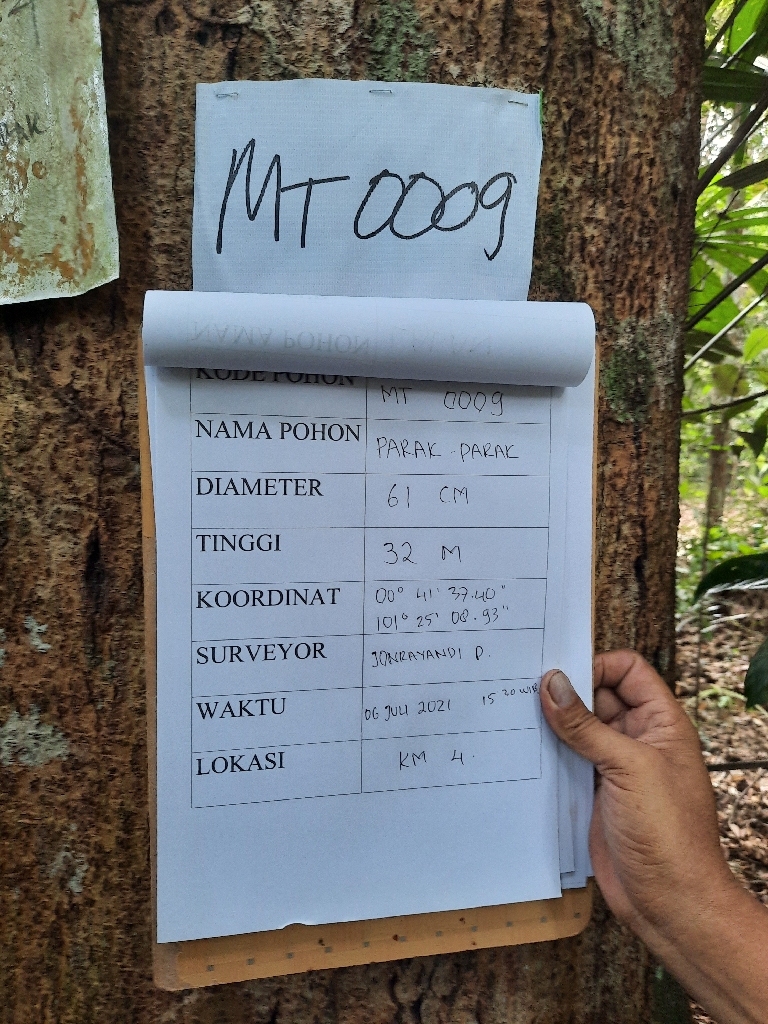 MT 0009
NAMA POHON
KODE POHON MT 0009
NAMA POHON PARAK-PARAK
DIAMETER 61 CM
TINGGI 32 M
KOORDINAT 00° 41' 37.40"
101° 25' 08.93"
SURVEYOR JONRAYANDI P.
WAKTU 06 JULI 2021 15 20 WIB
LOKASI KM 4.